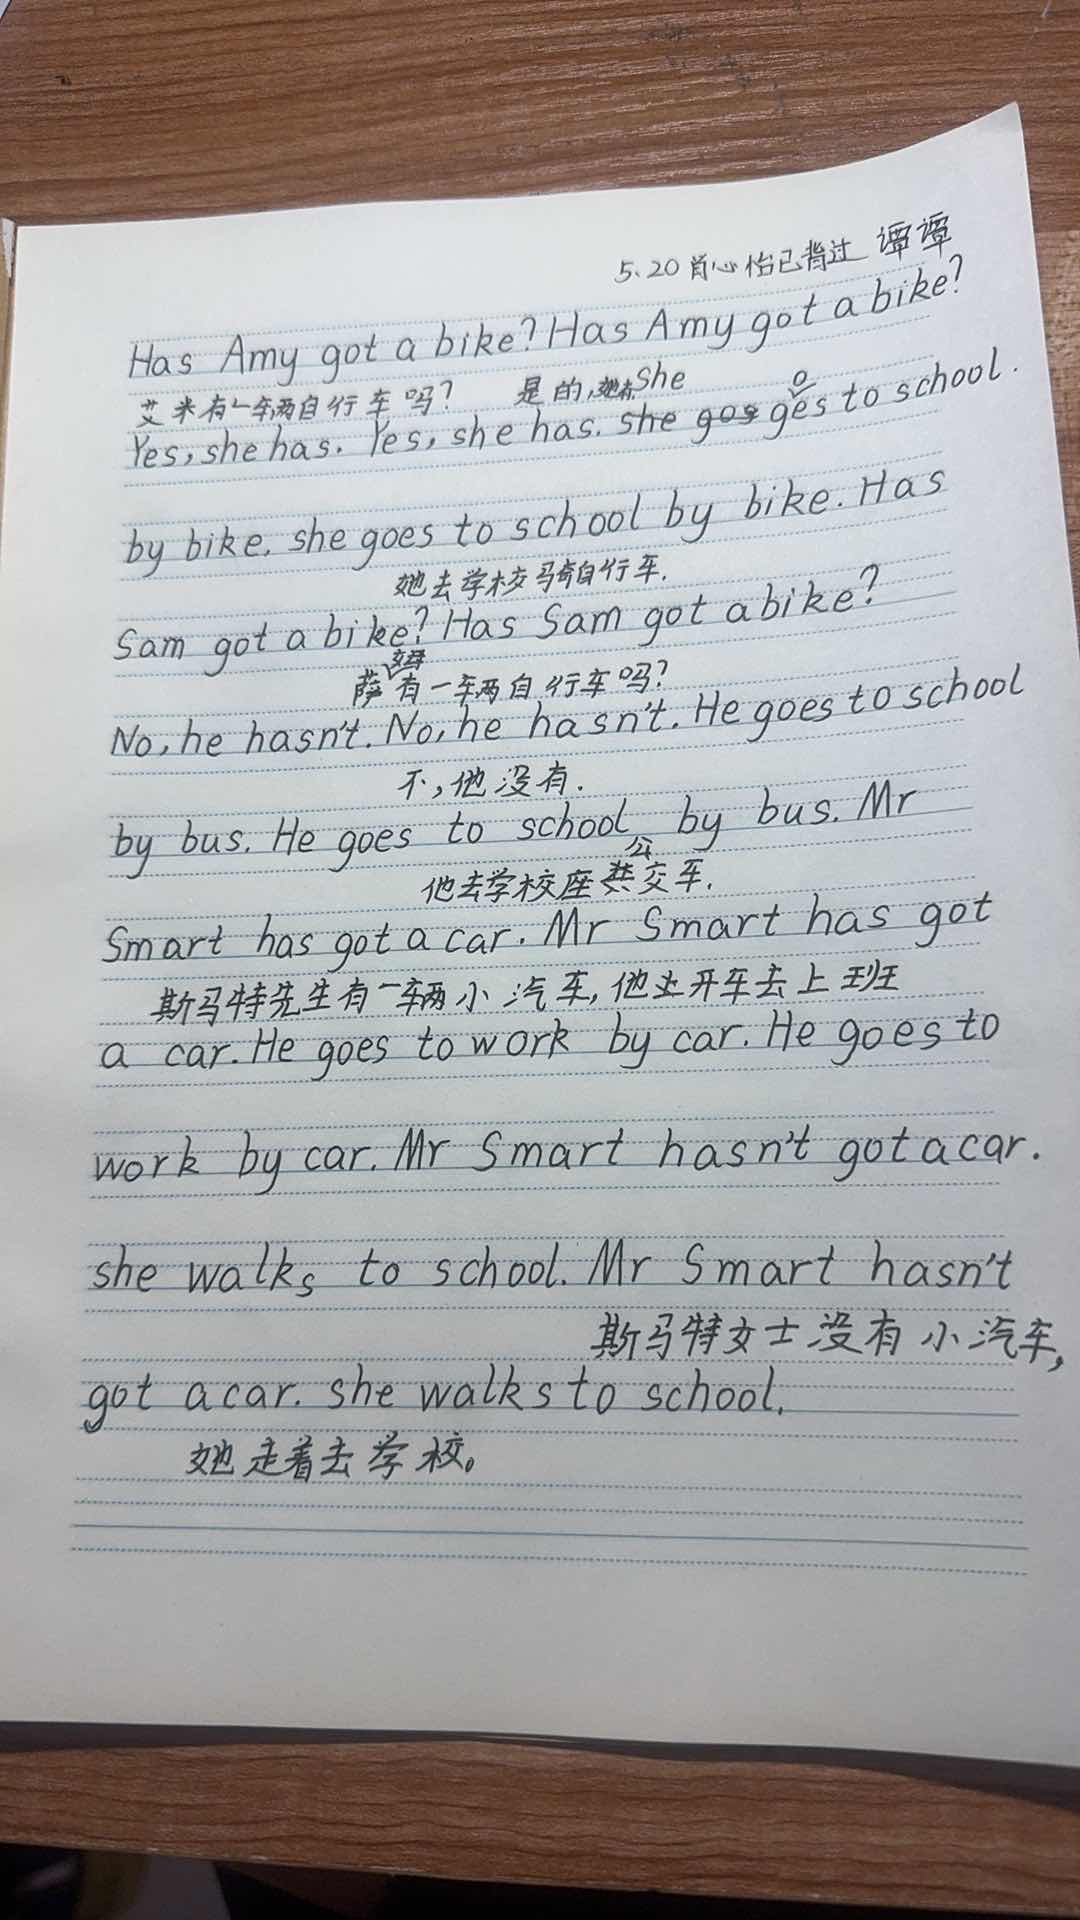 5.20肖心怡已背过 谭谭
Has Amy got a bike? Has Amy got a bike?
艾米有一车两自行车吗? 是的,她有. She
Yes, she has. Yes, she has. she gos goes to school.
by bike. she goes to school by bike. Has
她去学校骑自行车.
Sam got a bike? Has Sam got a bike?
萨姆有一车两自行车吗?
No, he hasn't. No, he hasn't. He goes to school
不,他没有.
by bus. He goes to school by bus. Mr
他去学校座公共交车.
Smart has got a car. Mr Smart has got
斯马特先生有一辆小汽车,他开车去上班
a car. He goes to work by car. He goes to
work by car. Mr Smart hasn't got a car.
she walks to school. Mr Smart hasn't
斯马特女士没有小汽车,
got a car. she walks to school.
她走着去学校。